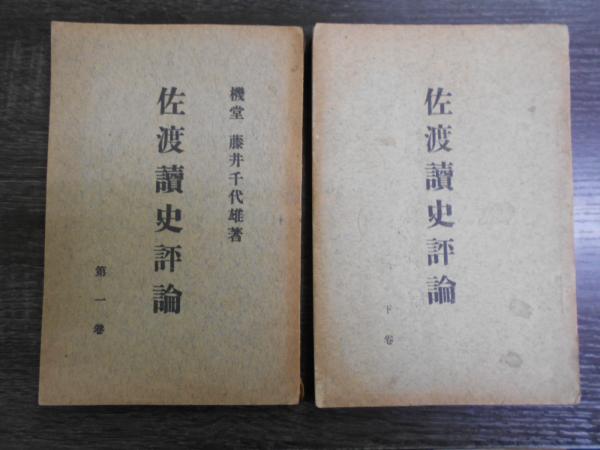 機堂 藤井千代雄著
佐渡讀史評論
第一卷
佐渡讀史評論
下卷